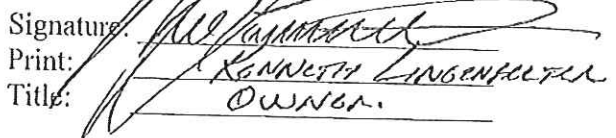 Signature:
Print: KENNETH LINGENFELTER
Title: OWNER.